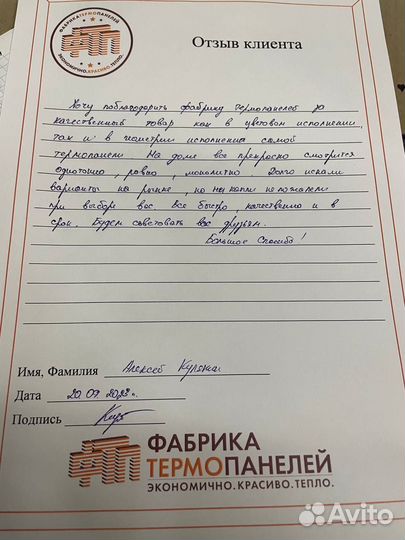 ФАБРИКА ТЕРМОПАНЕЛЕЙ
ФТП
ЭКОНОМИЧНО.КРАСИВО.ТЕПЛО.
Отзыв клиента
Хочу поблагодорить фабрику термопанелей за
качественный товар как в цветовом исполнении,
так и в геометрии исполнения самой
термопанели. На доме все прекрасно смотрится
однотонно, ровно, монолитно. Долго искали
варианты на рынке, но ни капли не пожалели
при выборе вас. Все быстро, качественно и в
срок. Будем советовать вас друзьям.
Большое спасибо!
Имя, Фамилия Алексей
Дата 20.07.2023г.
Подпись
ФТП
ФАБРИКА
ТЕРМОПАНЕЛЕЙ
ЭКОНОМИЧНО.КРАСИВО.ТЕПЛО.
Avito